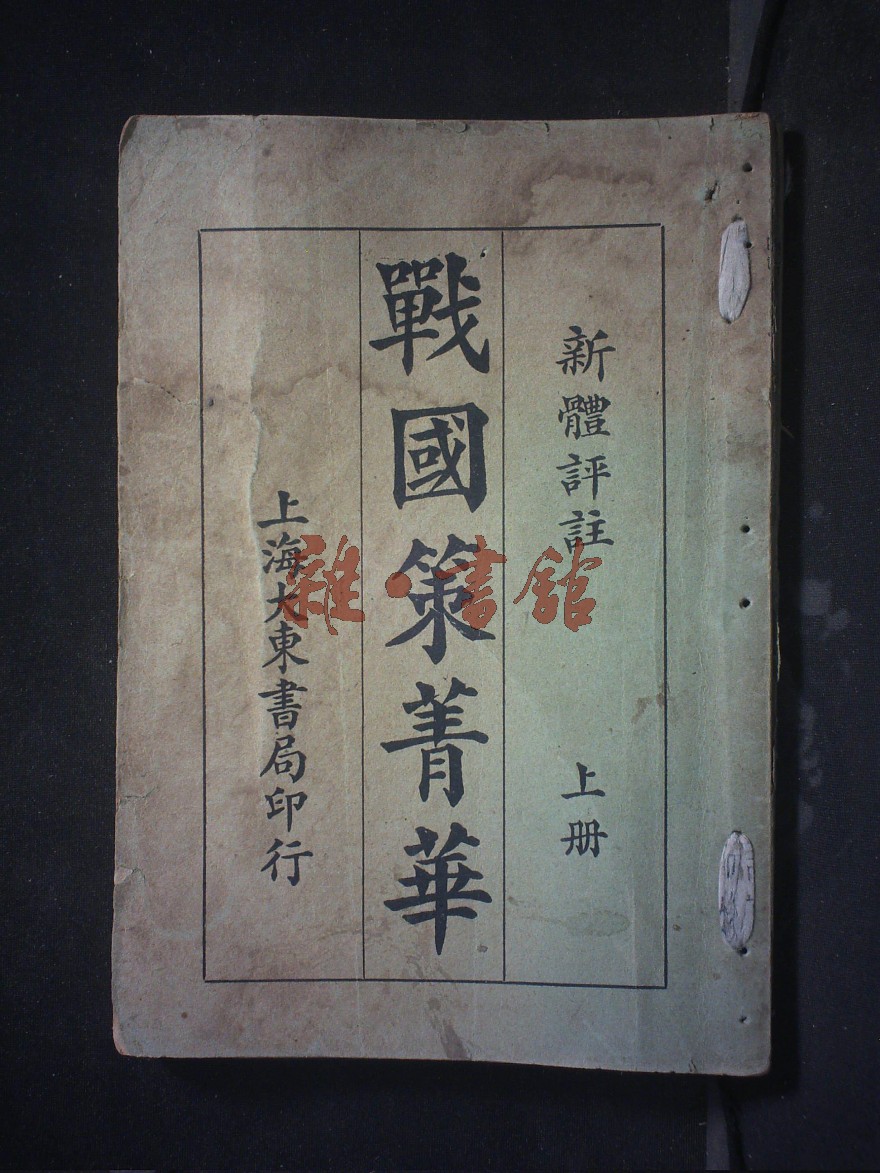 新體評註 上册
戰國策菁華
上海大東書局印行
雜·書館